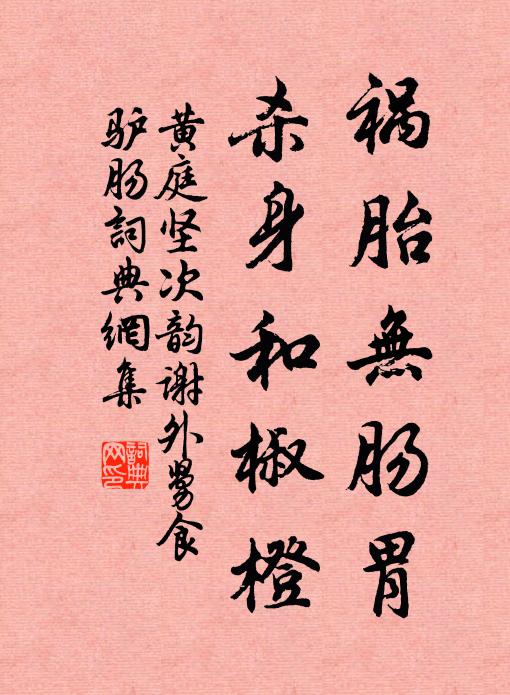 祸胎無肠胃
杀身和椒橙
黄庭坚次韵谢外舅食
驴肠詞典網集
詞典网印